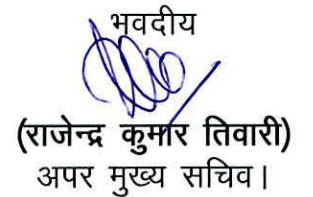 भवदीय
(राजेन्द्र कुमार तिवारी)
अपर मुख्य सचिव।